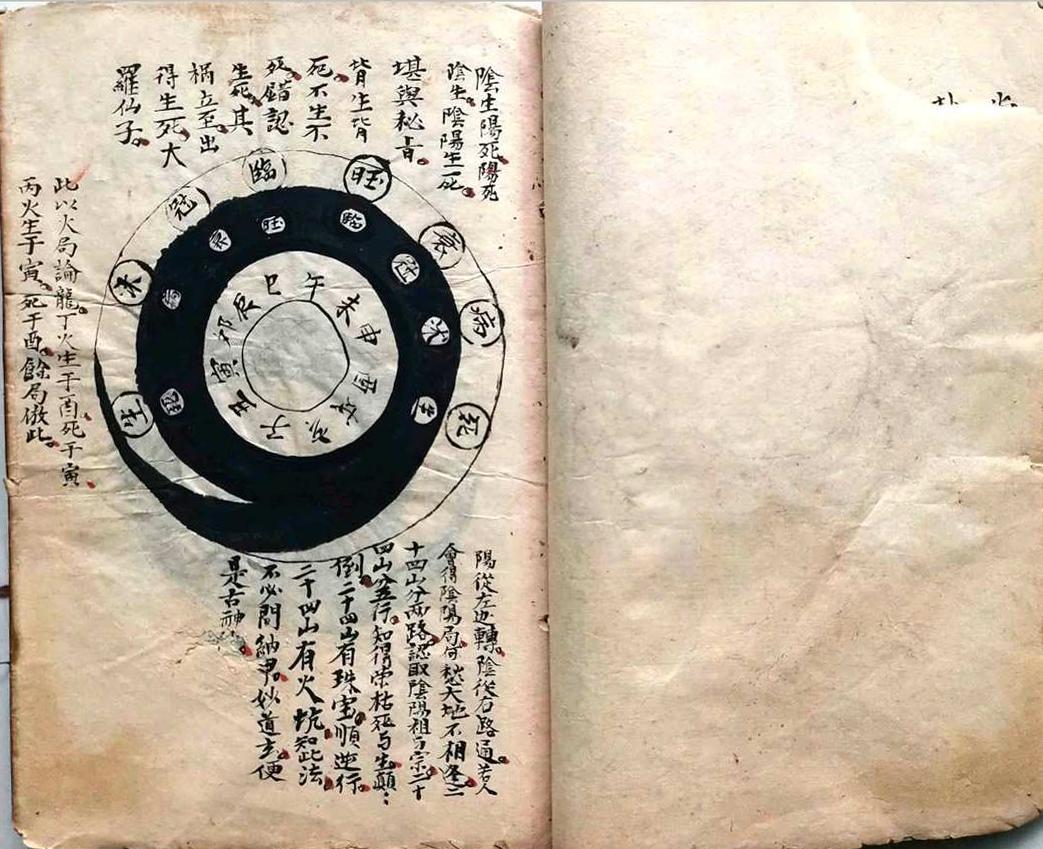 陰生陽死陽死
陰生陰陽生死
堪輿秘旨
皆生皆
死不生不
死錯認
生死其
禍立至出
得生死大
羅仙子
旺
臨
冠
沐
生
衰
病
死
臨
旺
衰
冠
沐
生
病
死
巳
午
未
申
酉
戌
亥
子
丑
寅
卯
辰
此以火局論龍丁火生于酉死于寅
丙火生于寅死于酉餘局倣此
陽從左边轉陰從右路通若人
會得陰陽局何愁天地不相逢二
十四山分兩路認取陰陽祖与宗二十
四山並行知得榮枯死与生顛々
倒二十四山有珠宝順逆行
二十四山有火坑知此法
不必問納甲妙道玄便
是古神